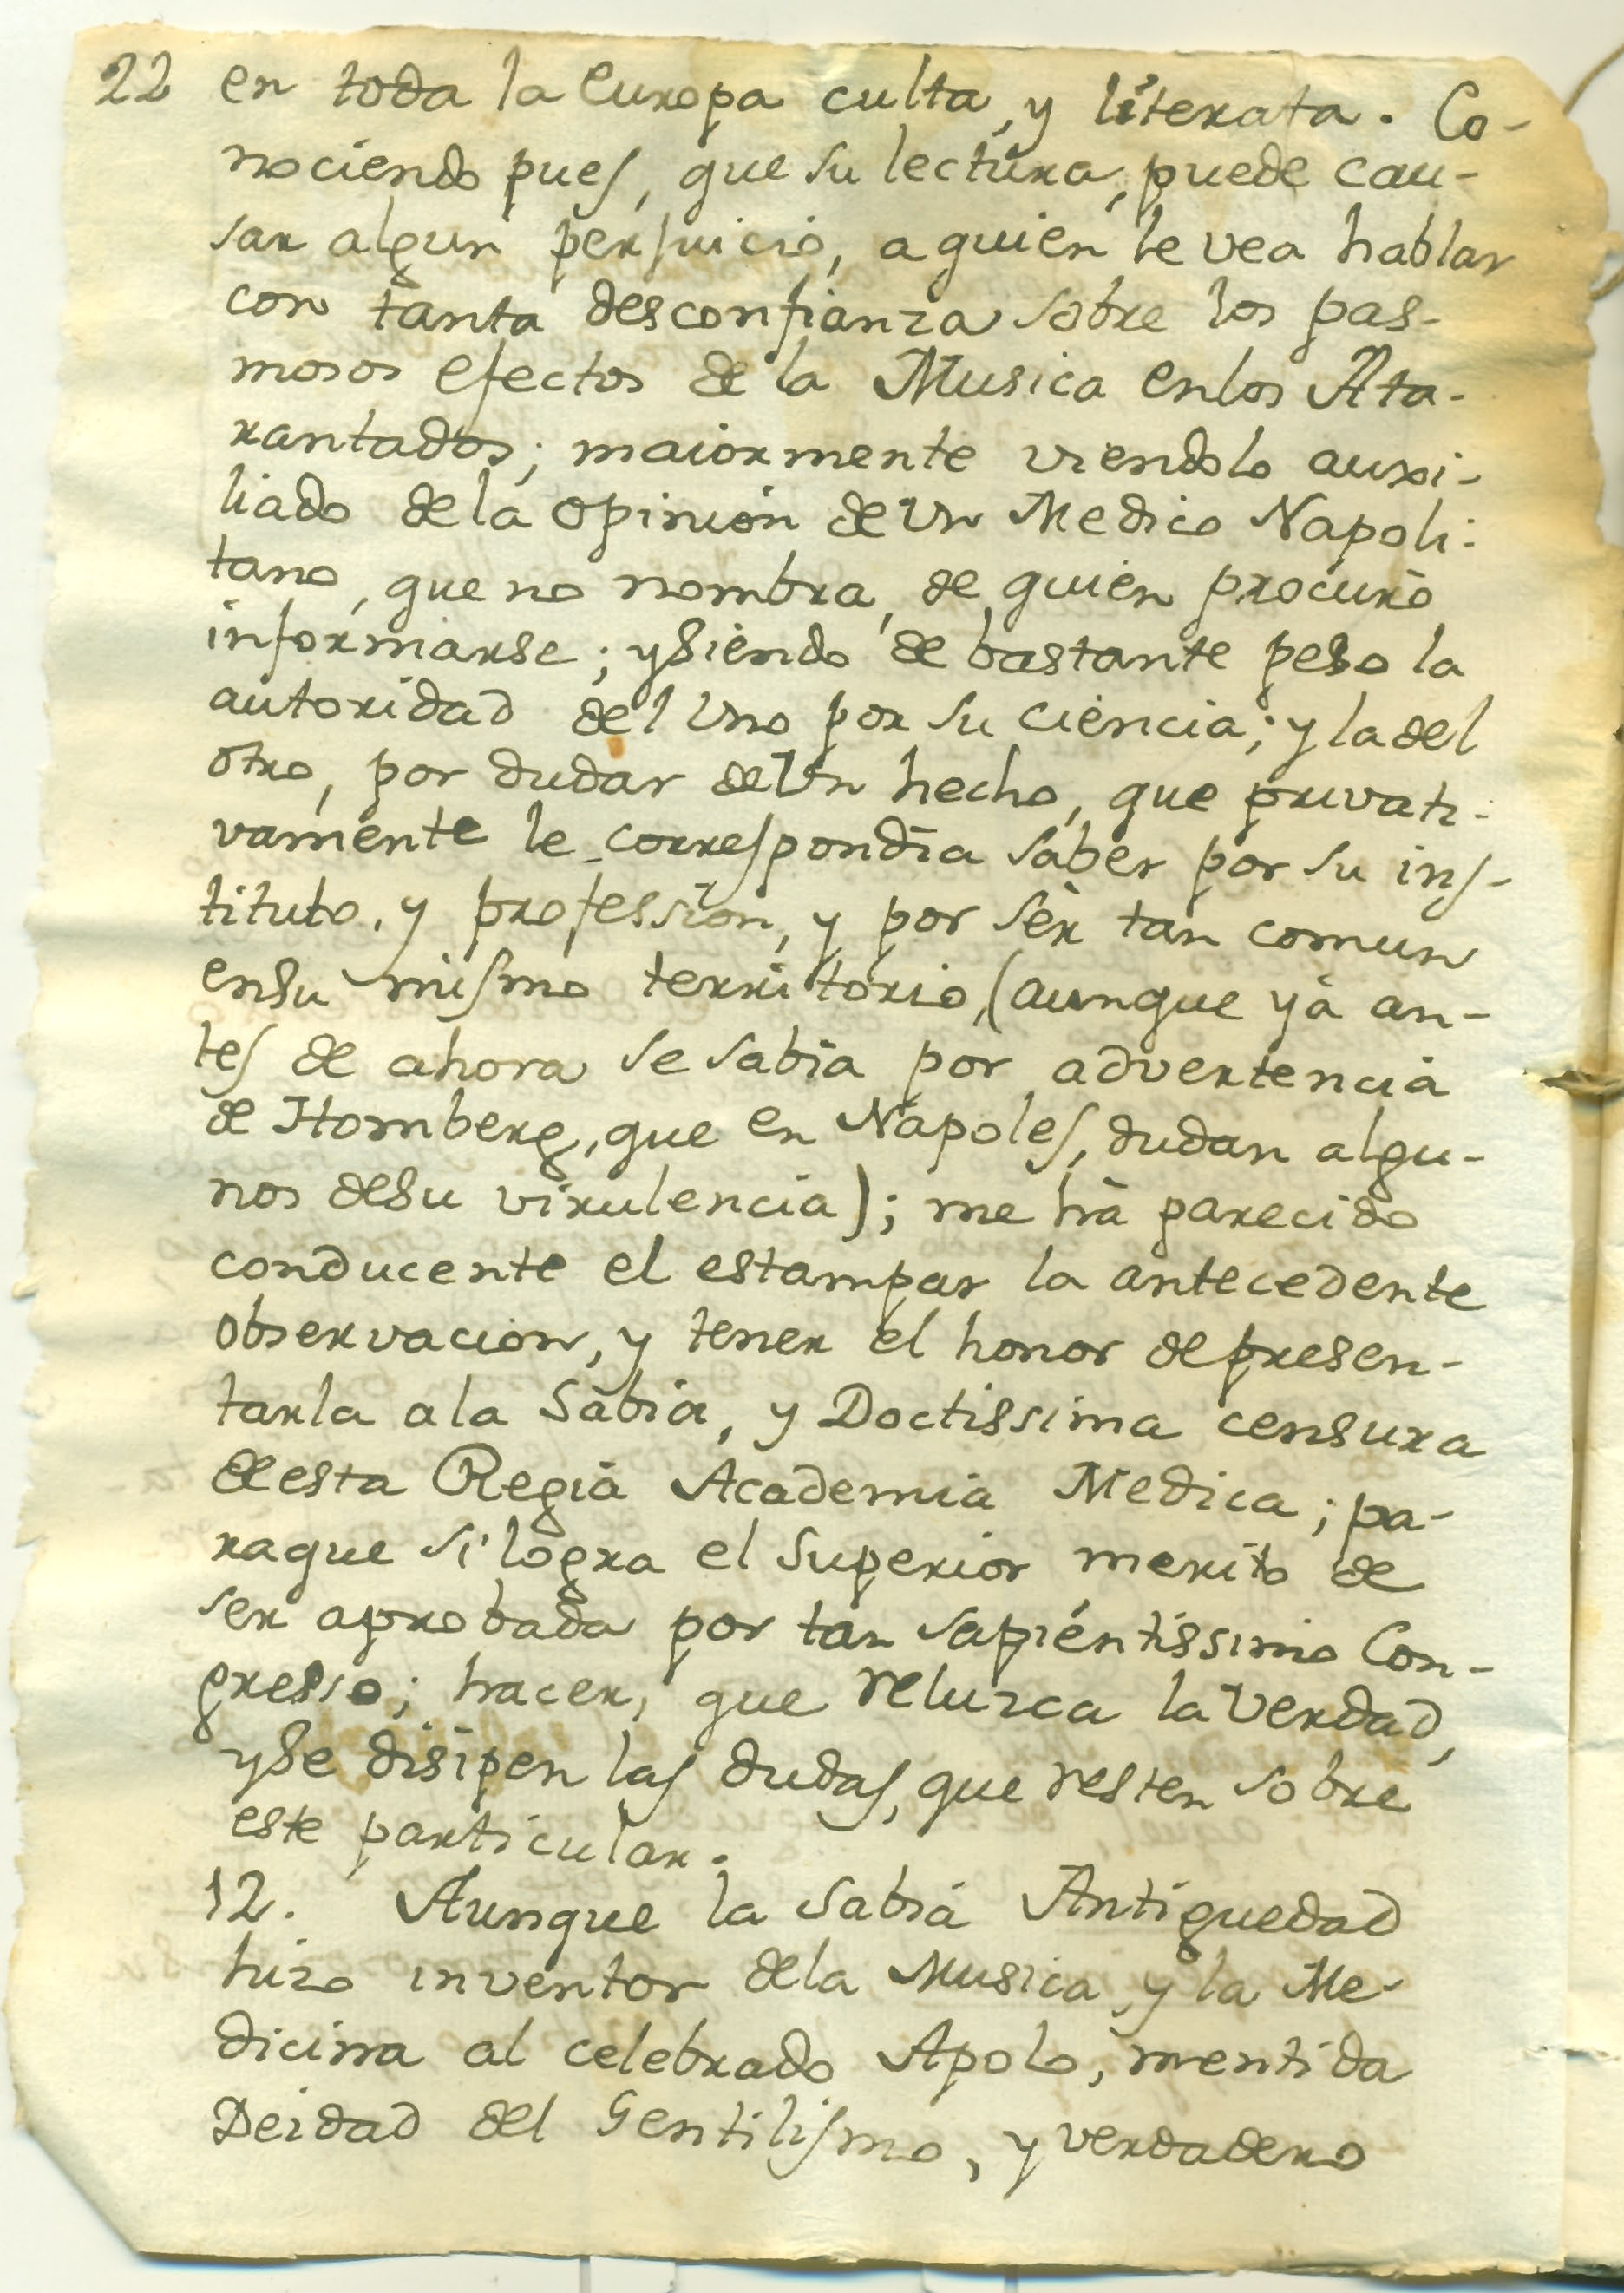 22 en toda la Europa culta, y literata. Co-
nociendo pues, que su lectura, puede cau-
sar algun perjuicio, a quien le vea hablar
con tanta desconfianza sobre los pas-
mosos efectos de la Musica enlos Ata-
rantados; maiormente viendolo auxi-
liado dela opinion de Un Medico Napoli:
tano, que no nombra, de quien procurò
informarse; ysiendo de bastante peso la
autoridad del Uno por su ciencia; y la del
otro, por dudar deUn hecho, que privati-
vamente le correspondia saber por su ins-
tituto, y profession, y por sèr tan comun
ensu mismo territorio, (aunque yà an-
tes de ahora se sabia por advertencia
de Homberg, que en Napoles, dudan algu-
nos desu virulencia); me hà parecido
conducente el estampar la antecedente
observacion, y tener el honor depresen-
tarla ala Sabia, y Doctissima censura
deesta Regia Academia Medica; pa-
raque si logra el superior merito de
ser aprobada por tan sapientissimo Con-
gresso; hacer, que reluzca la Verdad,
yse disipen las dudas, que resten sobre
este particular.
12. Aunque la sabia Antiguedad
hizo inventor dela Musica, y la Me-
dicina al celebrado Apolo, mentida
Deidad del Gentilismo, y verdadero